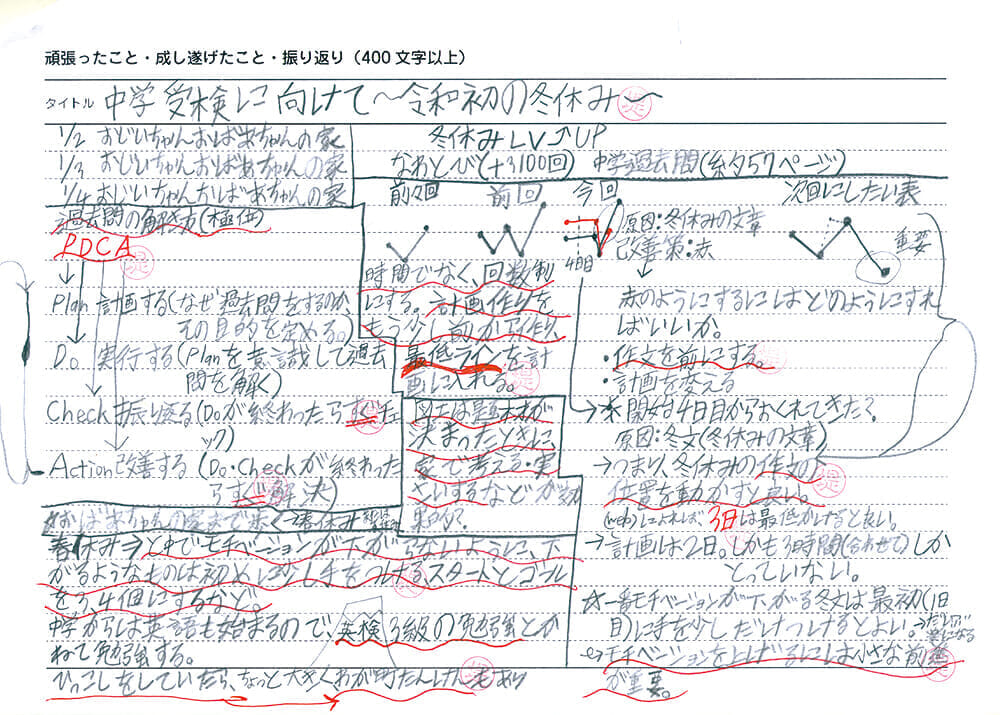 頑張ったこと・成し遂げたこと・振り返り（400文字以上）
タイトル 中学受検に向けて～令和初の冬休み～
1/2 おじいちゃんおばあちゃんの家
1/3 おじいちゃんおばあちゃんの家
1/4 おじいちゃんおばあちゃんの家
冬休みLV↑UP
なわとび(+3100回) 中学過去問(約57ページ)
過去問の解き方(極価)
PDCA
Plan 計画する(なぜ過去問をするのか、
その目的を定める。)
Do 実行する(Planを意識して過去
問を解く)
Check 振り返る(Doが終わったらすぐチェ
ック)
Action 改善する(Do・Checkが終わった
らすぐ解決)
前々回 前回 今回 次回にしたい表
4日目
原因:冬休みの文章
改善策:赤
重要
時間でなく、回数制
にする。計画作りを
もう少し前から作り、
最低ラインを計
画に入れる。
図工は題材が
決まったときに、
家で考える・実
さいするなどが
赤のようにするにはどのようにすれ
ばいいか。
・作文を前にする。
・計画を変える
→★開始4日目からおくれてきた?
原因:冬文(冬休みの文章)
→つまり、冬休みの作文の
位置を動かすと良い。
(web)によれば、3日は最低かけると良い。
→計画は2日。しかも3時間(合わせて)しか
とっていない。
☆一番モチベーションが下がる冬文は最初(1日
目)に手を少しだけつけるとよい。→だいぶ
楽になる
モチベーションを上げるには小さな前進
が重要。
おばあちゃんの家まで歩
←春休み
春休み⇒とちゅうでモチベーションが下がらないように、下
がるようなものは初めに少し手をつける、スタートとゴール
を3,4個にするなど。
中学からは英語も始まるので、英検3級の勉強とか
ねて勉強する。
ひっこしをしていたら、ちょっと大きくおが町たんけんもあり